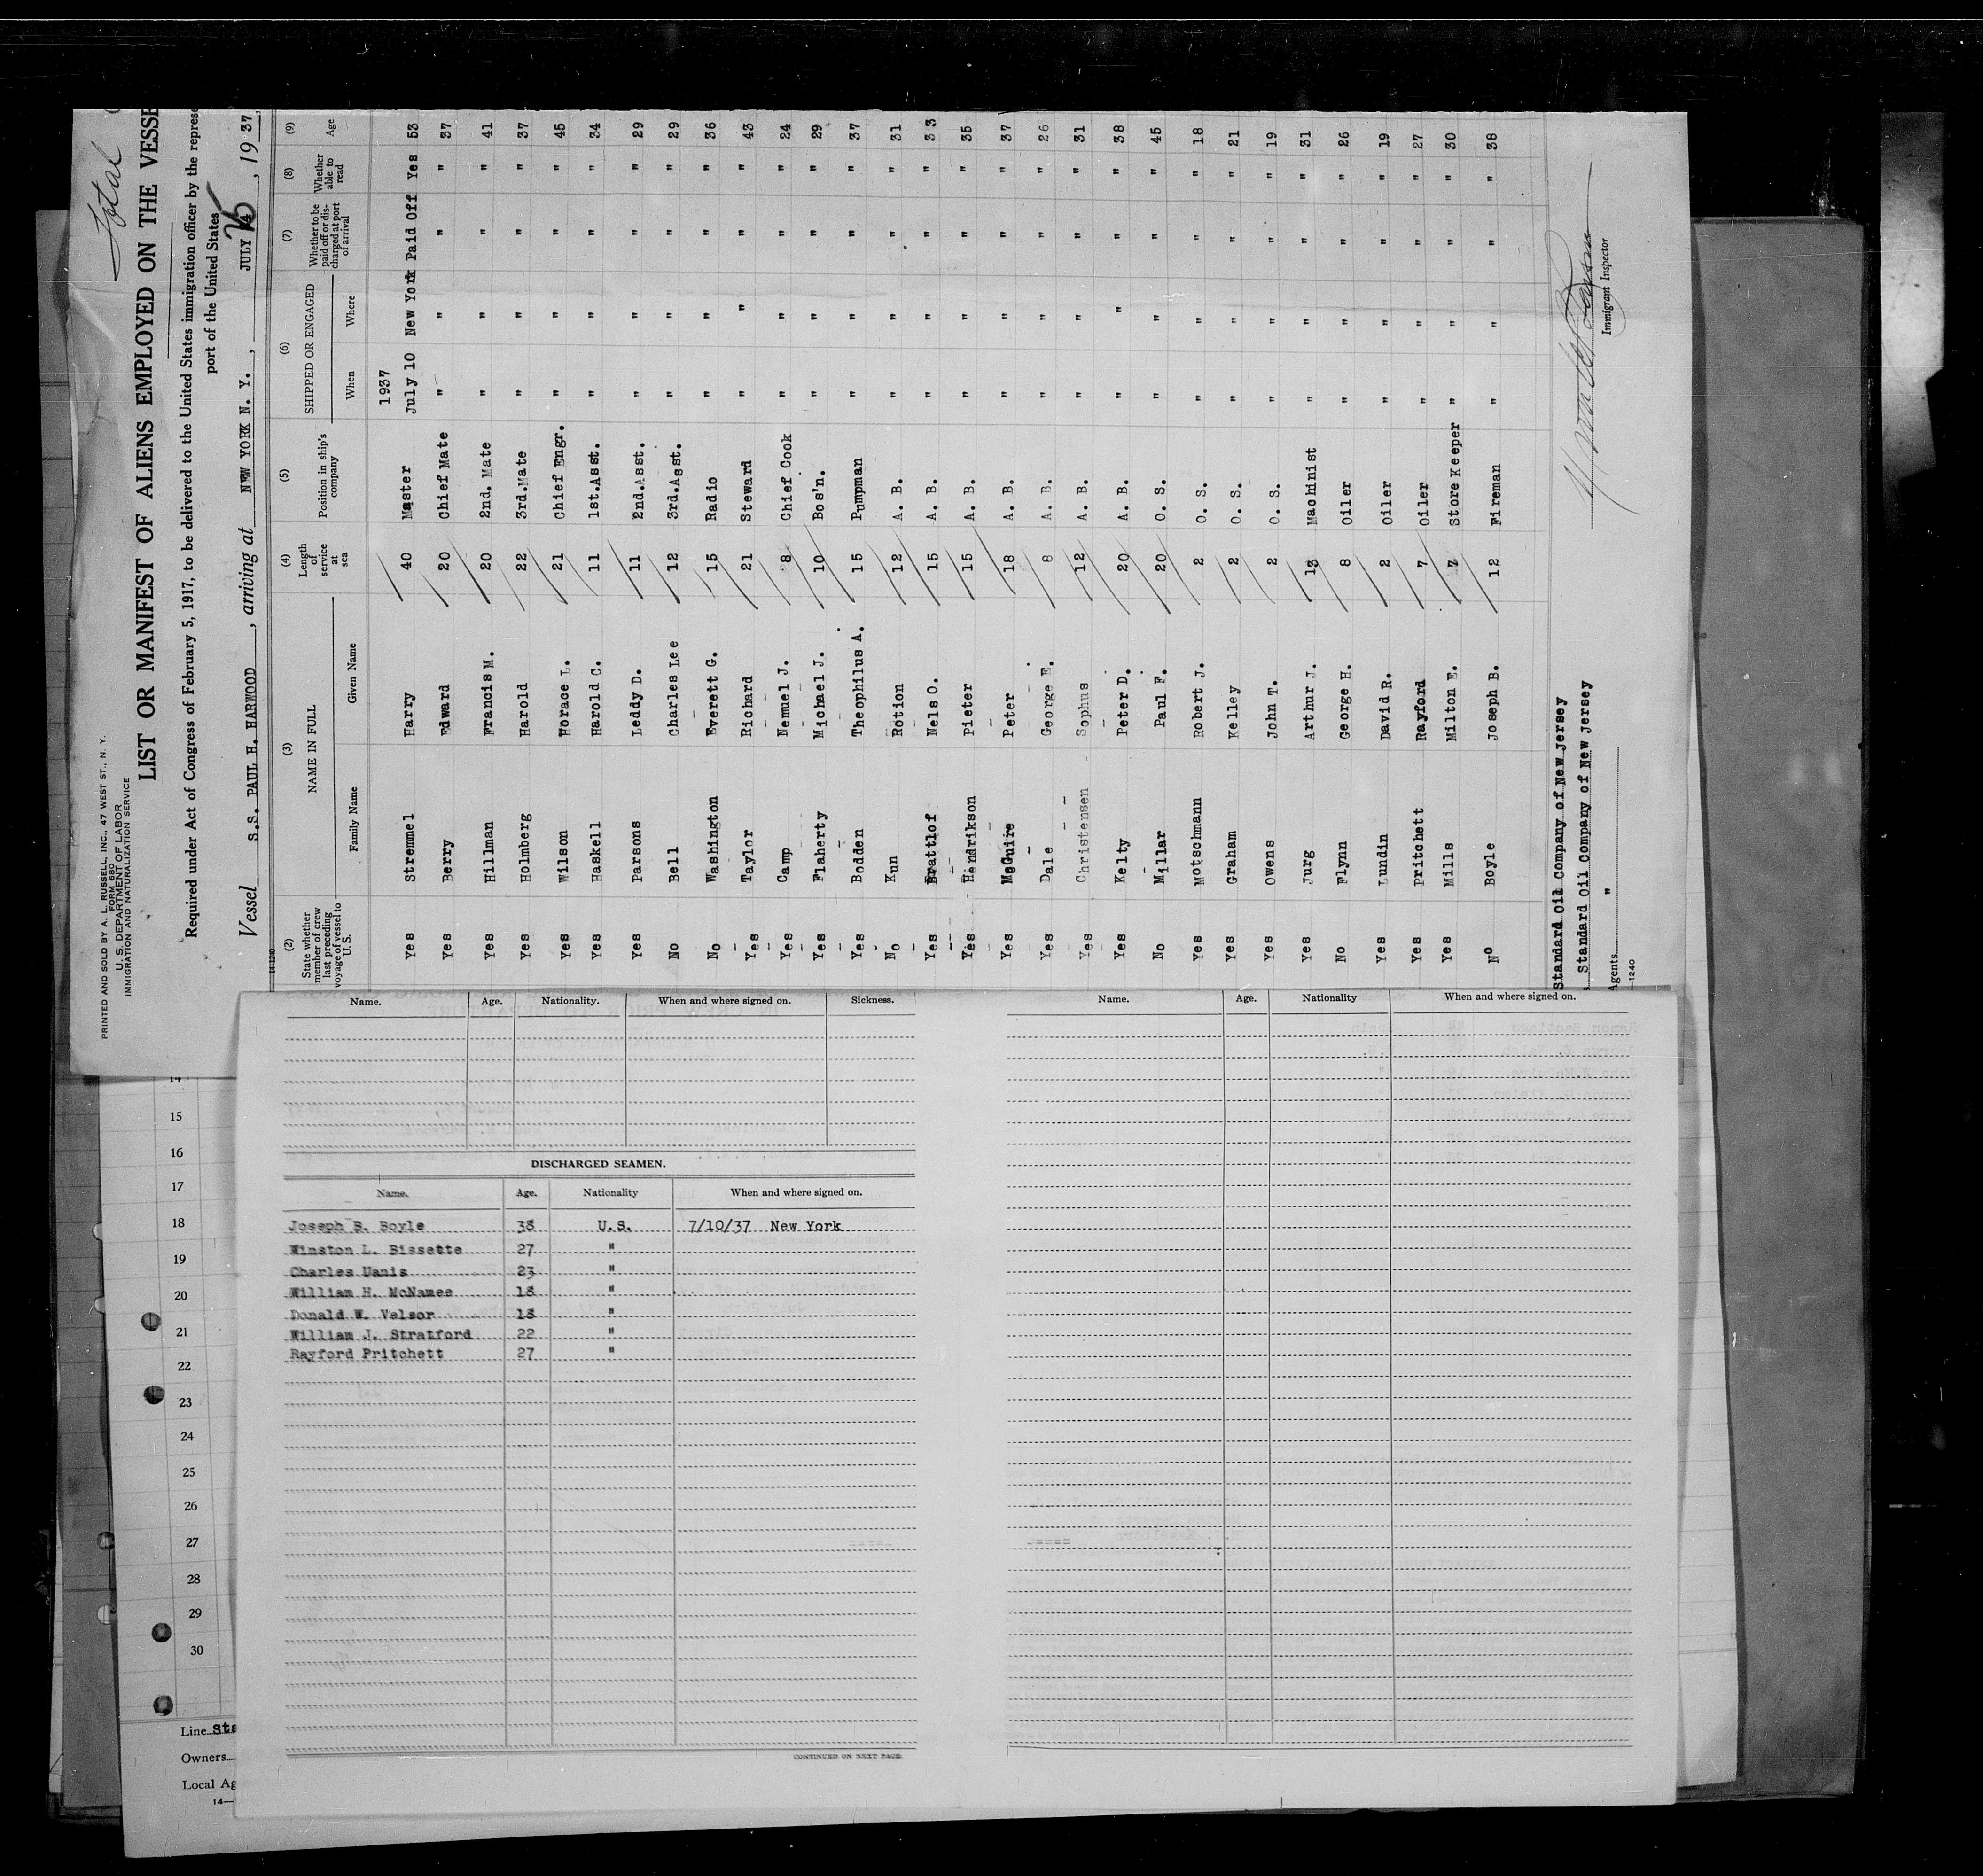 Total
PRINTED AND SOLD BY A. L. RUSSELL, INC., 47 WEST ST., N. Y.
FORM 680
U. S. DEPARTMENT OF LABOR
IMMIGRATION AND NATURALIZATION SERVICE
LIST OR MANIFEST OF ALIENS EMPLOYED ON THE VESSE
Required under Act of Congress of February 5, 1917, to be delivered to the United States immigration officer by the repres
port of the United States
Vessel S.S. PAUL H. HARWOOD, arriving at NEW YORK N. Y., JULY 25, 19 37,
14-1240
(2) (3) (4) (5) (6) (7) (8) (9)
State whether member of crew last preceding voyage of vessel to U. S. NAME IN FULL Length of service at sea Position in ship's company SHIPPED OR ENGAGED Whether to be paid off or discharged at port of arrival Whether able to read Age
Family Name Given Name When Where
1937
Yes Stremmel Harry 40 Master July 10 New York Paid Off Yes 53
Yes Berry Edward 20 Chief Mate " " " " 37
Yes Hillman Francis M. 20 2nd. Mate " " " " 41
Yes Holmberg Harold 22 3rd.Mate " " " " 37
Yes Wilson Horace L. 21 Chief Engr. " " " " 45
Yes Haskell Harold C. 11 1st.Asst. " " " " 34
Yes Parsons Leddy D. 11 2nd.Asst. " " " " 29
No Bell Charles Lee 12 3rd.Asst. " " " " 29
No Washington Everett G. 15 Radio " " " " 36
Yes Taylor Richard 21 Steward " " " " 43
Yes Camp Nemuel J. 8 Chief Cook " " " " 24
Yes Flaherty Michael J. 10 Bos'n. " " " " 29
Yes Bodden Theophilus A. 15 Pumpman " " " " 37
No Kun Rotion 12 A. B. " " " " 31
Yes Brattlof Nels O. 15 A. B. " " " " 33
Yes Hendrikson Pieter 15 A. B. " " " " 35
Yes McGuire Peter 18 A. B. " " " " 37
Yes Dale George E. 8 A. B. " " " " 26
Yes Christensen Sophus 12 A. B. " " " " 31
Yes Kelty Peter D. 20 A. B. " " " " 38
No Millar Paul F. 20 O. S. " " " " 45
Yes Motschmann Robert J. 2 O. S. " " " " 18
Yes Graham Kelley 2 O. S. " " " " 21
Yes Owens John T. 2 O. S. " " " " 19
Yes Jurg Arthur J. 13 Machinist " " " " 31
No Flynn George H. 8 Oiler " " " " 26
Yes Lundin David R. 2 Oiler " " " " 19
Yes Pritchett Rayford 7 Oiler " " " " 27
Yes Mills Milton E. 7 Store Keeper " " " " 30
No Boyle Joseph B. 12 Fireman " " " " 38
Standard Oil Company of New Jersey
Standard Oil Company of New Jersey
Agents "
—1240
Immigrant Inspector
Name. Age. Nationality. When and where signed on. Sickness.
DISCHARGED SEAMEN.
Name. Age. Nationality When and where signed on.
Joseph B. Boyle 38 U.S. 7/10/37 New York
Winston L. Bissette 27 "
Charles Uanis 23 "
William H. McNamee 18 "
Donald W. Velsor 18 "
William J. Stratford 22 "
Rayford Pritchett 27 "
CONTINUED ON NEXT PAGE
Name. Age. Nationality When and where signed on.
14
15
16
17
18
19
20
21
22
23
24
25
26
27
28
29
30
Line Sta
Owners
Local Ag
14—